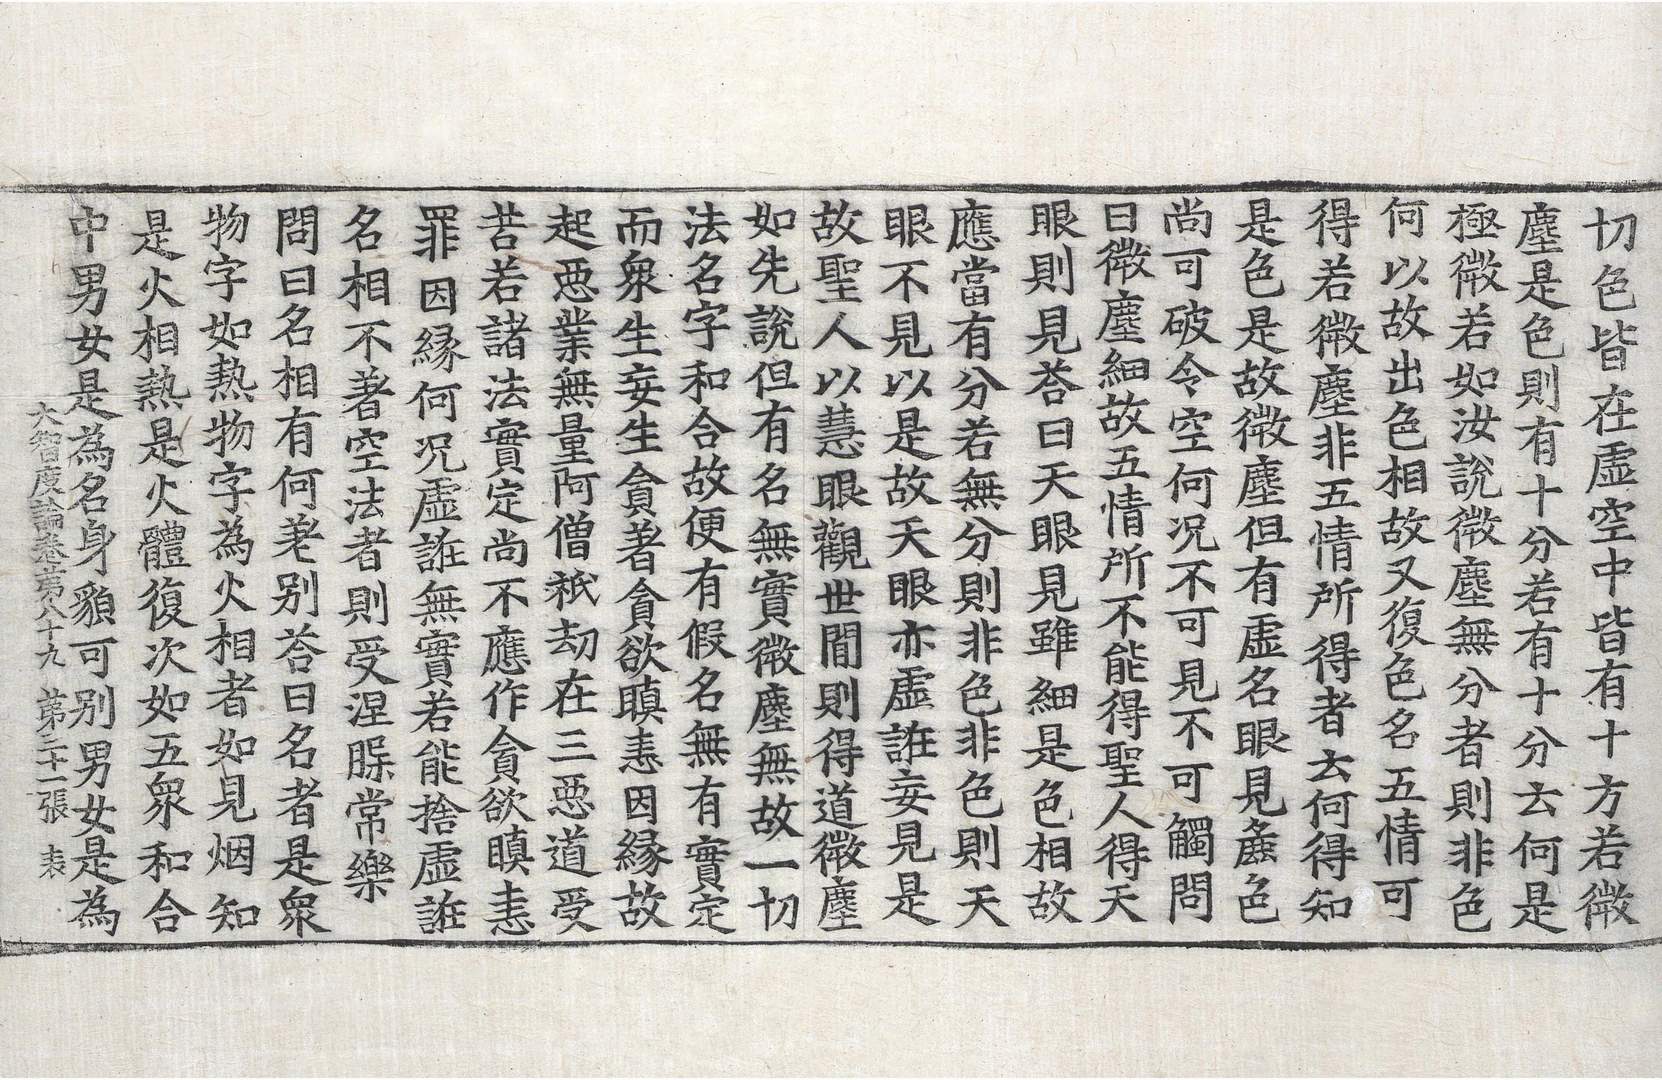 切色皆在虛空中皆有十方若微
塵是色則有十分若有十分云何是
極微若如汝說微塵無分者則非色
何以故出色相故又復色名五情可
得若微塵非五情所得者云何得知
是色是故微塵但有虛名眼見麁色
尚可破令空何況不可見不可觸問
曰微塵細故五情所不能得聖人得天
眼則見荅曰天眼見雖細是色相故
應當有分若無分則非色非色則天
眼不見以是故天眼亦虛誑妄見是
故聖人以慧眼觀世間則得道微塵
如先說但有名無實微塵無故一切
法名字和合故便有假名無有實定
而衆生妄生貪著貪欲瞋恚因緣故
起惡業無量阿僧祇劫在三惡道受
苦若諸法實定尚不應作貪欲瞋恚
罪因緣何況虛誑無實若能捨虛誑
名相不著空法者則受涅槃常樂
問曰名相有何差別荅曰名者是衆
物字如熱物字為火相者如見烟知
是火相熱是火體復次如五衆和合
中男女是為名身貌可別男女是為
大智度論卷第八十九 第二十一張 表